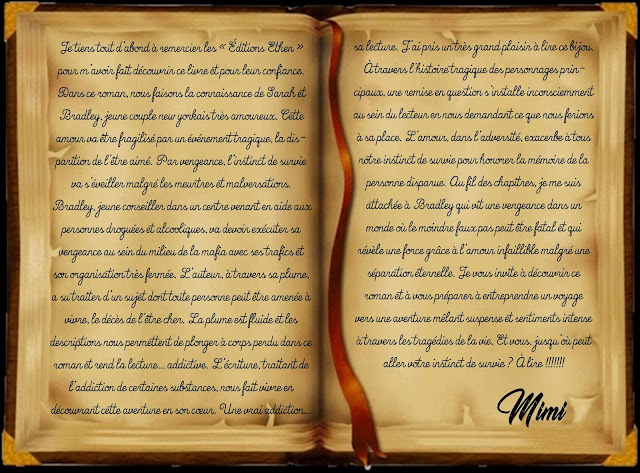 Je tiens tout d'abord à remercier les « Éditions Ethen »
pour m'avoir fait découvrir ce livre et pour leur confiance.
Dans ce roman, nous faisons la connaissance de Sarah et
Bradley, jeune couple new yorkais très amoureux. Cette
amour va être fragilisé par un événement tragique, la dis-
parition de l'être aimé. Par vengeance, l'instinct de survie
va s'éveiller malgré les meurtres et malversations.
Bradley, jeune conseiller dans un centre venant en aide aux
personnes droguées et alcooliques, va devoir exécuter sa
vengeance au sein du milieu de la mafia avec ses trafics et
son organisation très fermée. L'auteur, à travers sa plume,
a su traiter d'un sujet dont toute personne peut être amenée à
vivre, le décès de l'être cher. La plume est fluide et les
descriptions nous permettent de plonger à corps perdu dans ce
roman et rend la lecture... addictive. L'écriture, traitant de
l'addiction de certaines substances, nous fait vivre en
découvrant cette aventure en son cœur. Une vrai addiction...
sa lecture. J'ai pris un très grand plaisir à lire ce bijou.
À travers l'histoire tragique des personnages prin-
cipaux, une remise en question s'installe inconsciemment
au sein du lecteur en nous demandant ce que nous ferions
à sa place. L'amour, dans l'adversité, exacerbe à tous
nôtre instinct de survie pour honorer la mémoire de la
personne disparue. Au fil des chapitres, je me suis
attachée à Bradley qui vit une vengeance dans un
monde où le moindre faux pas peut être fatal et qui
révèle une force grâce à l'amour infaillible malgré une
séparation éternelle. Je vous invite à découvrir ce
roman et à vous préparer à entreprendre un voyage
vers une aventure mêlant suspense et sentiments intense
à travers les tragédies de la vie. Et vous, jusqu'où peut
aller votre instinct de survie ? À lire !!!!!!!
Mimi